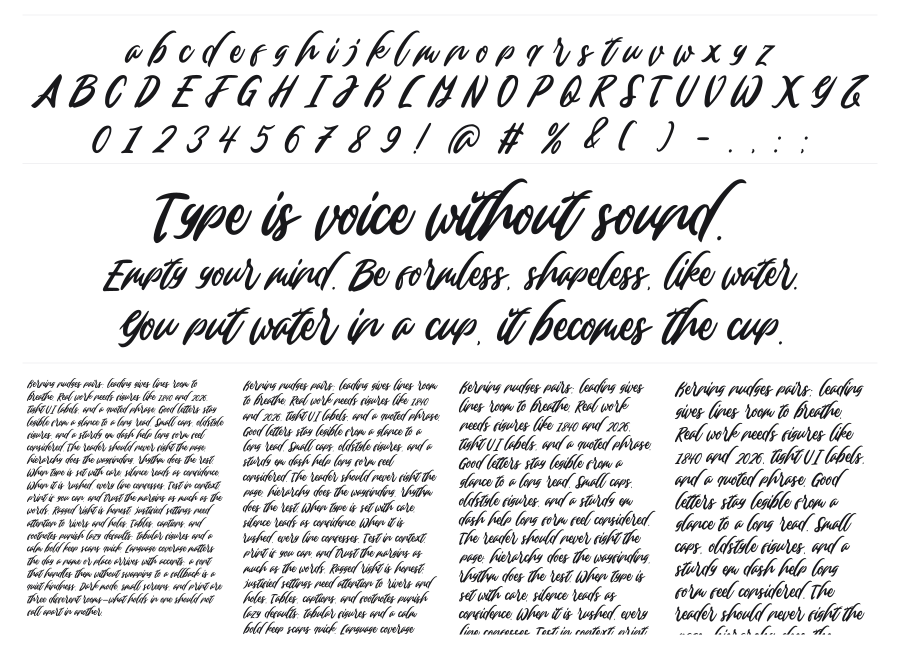 a b c d e f g h i j k l m n o p q r s t u v w x y z
A B C D E F G H I J K L M N O P Q R S T U V W X Y Z
0 1 2 3 4 5 6 7 8 9 ! @ # % & ( ) - . , : ;
Type is voice without sound.
Empty your mind. Be formless, shapeless, like water.
You put water in a cup, it becomes the cup.
Kerning nudges pairs; leading gives lines room to
breathe. Real work needs figures like 1840 and 2026,
tight UI labels, and a quoted phrase. Good letters stay
legible from a glance to a long read. Small caps, oldstyle
figures, and a sturdy em dash help long form feel
considered. The reader should never fight the page;
hierarchy does the wayfinding, rhythm does the rest.
When type is set with care, silence reads as confidence.
When it is rushed, every line confesses. Test in context:
print if you can, and trust the margins as much as the
words. Ragged right is honest; justified settings need
attention to rivers and holes. Tables, captions, and
footnotes punish lazy defaults; tabular figures and a
calm bold keep scans quick. Language coverage matters
the day a name or place arrives with accents; a font
that handles them without swapping to a fallback is a
quiet kindness. Dark mode, small screens, and print are
three different rooms—what holds in one should not
fall apart in another.
Kerning nudges pairs; leading gives lines room
to breathe. Real work needs figures like 1840
and 2026, tight UI labels, and a quoted phrase.
Good letters stay legible from a glance to a
long read. Small caps, oldstyle figures, and a
sturdy em dash help long form feel
considered. The reader should never fight the
page; hierarchy does the wayfinding, rhythm
does the rest. When type is set with care,
silence reads as confidence. When it is
rushed, every line confesses. Test in context:
print if you can, and trust the margins as
much as the words. Ragged right is honest;
justified settings need attention to rivers and
holes. Tables, captions, and footnotes punish
lazy defaults; tabular figures and a calm
bold keep scans quick. Language coverage
Kerning nudges pairs; leading gives
lines room to breathe. Real work
needs figures like 1840 and 2026,
tight UI labels, and a quoted phrase.
Good letters stay legible from a
glance to a long read. Small caps,
oldstyle figures, and a sturdy em
dash help long form feel considered.
The reader should never fight the
page; hierarchy does the wayfinding,
rhythm does the rest. When type is
set with care, silence reads as
confidence. When it is rushed, every
line confesses. Test in context: print
Kerning nudges pairs; leading
gives lines room to breathe.
Real work needs figures like
1840 and 2026, tight UI labels,
and a quoted phrase. Good
letters stay legible from a
glance to a long read. Small
caps, oldstyle figures, and a
sturdy em dash help long
form feel considered. The
reader should never fight the
page; hierarchy does the